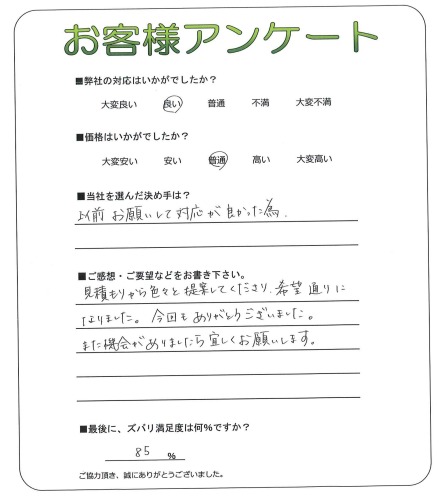 お客様アンケート
■弊社の対応はいかがでしたか？
大変良い 良い 普通 不満 大変不満
■価格はいかがでしたか？
大変安い 安い 普通 高い 大変高い
■当社を選んだ決め手は？
以前お願いして対応が良かった為.
■ご感想・ご要望などをお書き下さい。
見積もりから色々と提案してくださり、希望通りに
なりました。今回もありがとうございました。
また機会がありましたら宜しくお願いします。
■最後に、ズバリ満足度は何%ですか？
85 %
ご協力頂き、誠にありがとうございました。